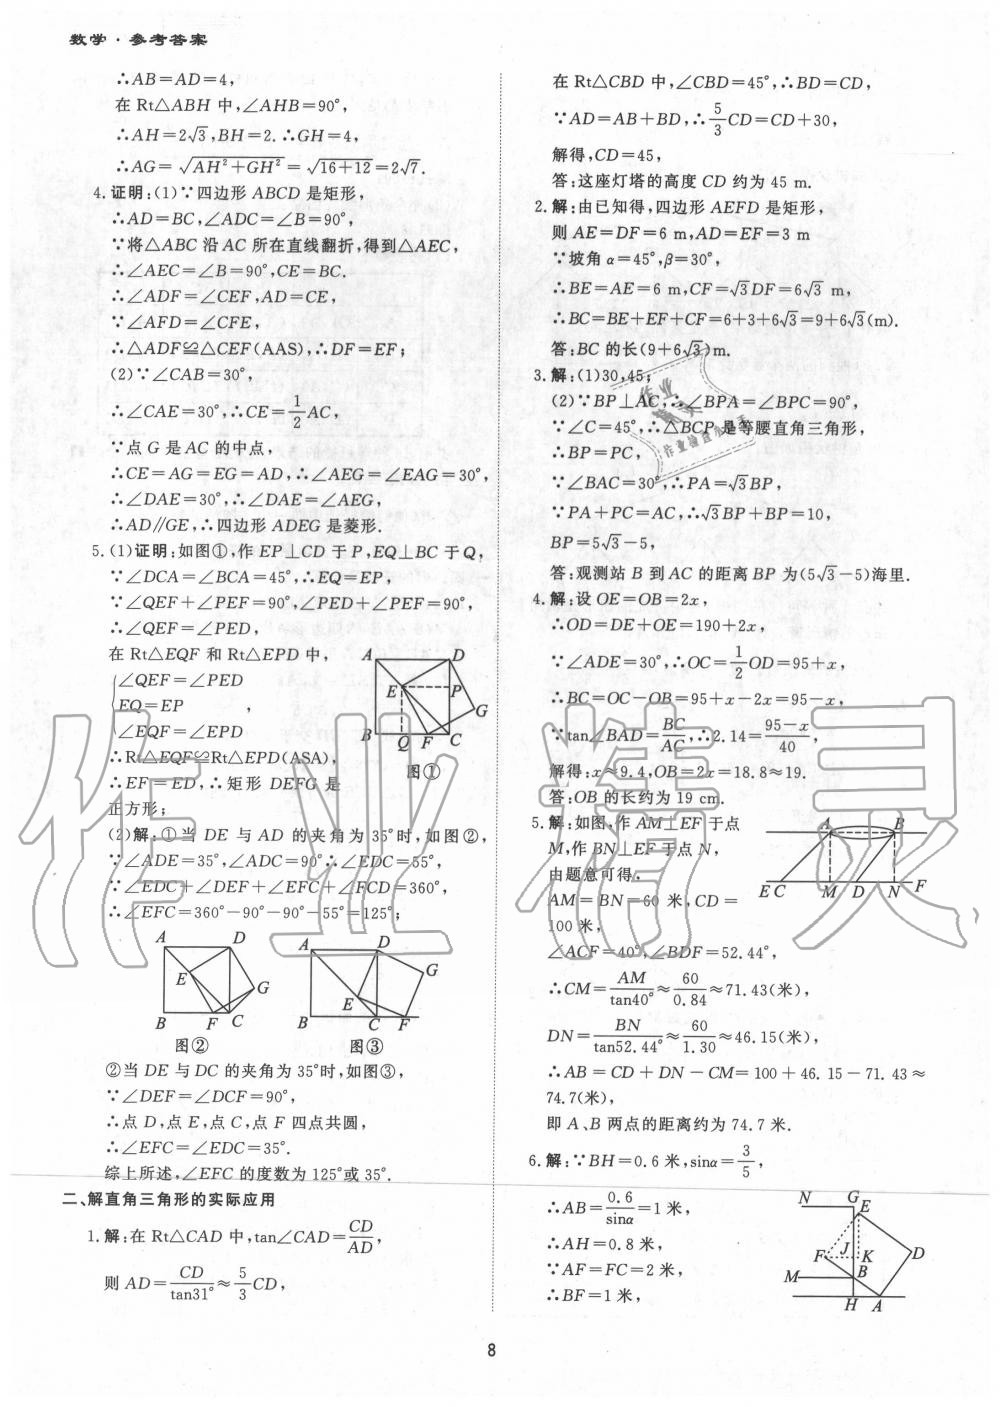 数学·参考答案
∴AB=AD=4,
在 Rt△ABH 中,∠AHB=90°,
∴AH=2√3,BH=2.∴GH=4,
∴AG=√(AH²+GH²)=√(16+12)=2√7.
4.证明:(1)∵四边形 ABCD 是矩形,
∴AD=BC,∠ADC=∠B=90°,
∵将△ABC 沿 AC 所在直线翻折,得到△AEC,
∴∠AEC=∠B=90°,CE=BC.
∴∠ADF=∠CEF,AD=CE,
∵∠AFD=∠CFE,
∴△ADF≌△CEF(AAS),∴DF=EF;
(2)∵∠CAB=30°,
∴∠CAE=30°,∴CE=1/2AC,
∵点 G 是 AC 的中点,
∴CE=AG=EG=AD,∴∠AEG=∠EAG=30°,
∴∠DAE=30°,∴∠DAE=∠AEG,
∴AD∥GE,∴四边形 ADEG 是菱形.
5.(1)证明:如图①,作 EP⊥CD 于 P,EQ⊥BC 于 Q,
∵∠DCA=∠BCA=45°,∴EQ=EP,
∵∠QEF+∠PEF=90°,∠PED+∠PEF=90°,
∴∠QEF=∠PED,
在 Rt△EQF 和 Rt△EPD 中,
{∠QEF=∠PED
EQ=EP ,
∠EQF=∠EPD
∴Rt△EQF≌Rt△EPD(ASA),
∴EF=ED,∴矩形 DEFG 是
正方形;
A D E P G B Q F C
图①
(2)解:①当 DE 与 AD 的夹角为 35°时,如图②,
∵∠ADE=35°,∠ADC=90°∴∠EDC=55°,
∵∠EDC+∠DEF+∠EFC+∠FCD=360°,
∴∠EFC=360°-90°-90°-55°=125°;
A D E G B F C
图②
A D G E B C F
图③
②当 DE 与 DC 的夹角为 35°时,如图③,
∵∠DEF=∠DCF=90°,
∴点 D,点 E,点 C,点 F 四点共圆,
∴∠EFC=∠EDC=35°.
综上所述,∠EFC 的度数为 125°或 35°.
二、解直角三角形的实际应用
1.解:在 Rt△CAD 中,tan∠CAD=CD/AD,
则 AD=CD/tan31°≈5/3CD,
在 Rt△CBD 中,∠CBD=45°,∴BD=CD,
∵AD=AB+BD,∴5/3CD=CD+30,
解得,CD=45,
答:这座灯塔的高度 CD 约为 45 m.
2.解:由已知得,四边形 AEFD 是矩形,
则 AE=DF=6 m,AD=EF=3 m
∵坡角 α=45°,β=30°,
∴BE=AE=6 m,CF=√3DF=6√3 m,
∴BC=BE+EF+CF=6+3+6√3=9+6√3(m).
答:BC 的长(9+6√3)m.
3.解:(1)30,45;
(2)∵BP⊥AC,∴∠BPA=∠BPC=90°,
∵∠C=45°,∴△BCP 是等腰直角三角形,
∴BP=PC,
∵∠BAC=30°,∴PA=√3BP,
∵PA+PC=AC,∴√3BP+BP=10,
BP=5√3-5,
答:观测站 B 到 AC 的距离 BP 为(5√3-5)海里.
4.解:设 OE=OB=2x,
∴OD=DE+OE=190+2x,
∵∠ADE=30°,∴OC=1/2OD=95+x,
∴BC=OC-OB=95+x-2x=95-x,
∵tan∠BAD=BC/AC,∴2.14=(95-x)/40,
解得:x≈9.4,OB=2x=18.8≈19.
答:OB 的长约为 19 cm.
5.解:如图,作 AM⊥EF 于点
M,作 BN⊥EF 于点 N,
由题意可得.
AM=BN=60 米,CD=
100 米,
A B E C M D N F
∠ACF=40°,∠BDF=52.44°,
∴CM=AM/tan40°≈60/0.84≈71.43(米),
DN=BN/tan52.44°≈60/1.30≈46.15(米),
∴AB=CD+DN-CM=100+46.15-71.43≈
74.7(米),
即 A、B 两点的距离约为 74.7 米.
6.解:∵BH=0.6 米,sinα=3/5,
∴AB=0.6/sinα=1 米,
∴AH=0.8 米,
∵AF=FC=2 米,
∴BF=1 米,
N G E F J K D M B H A
8
作业精灵